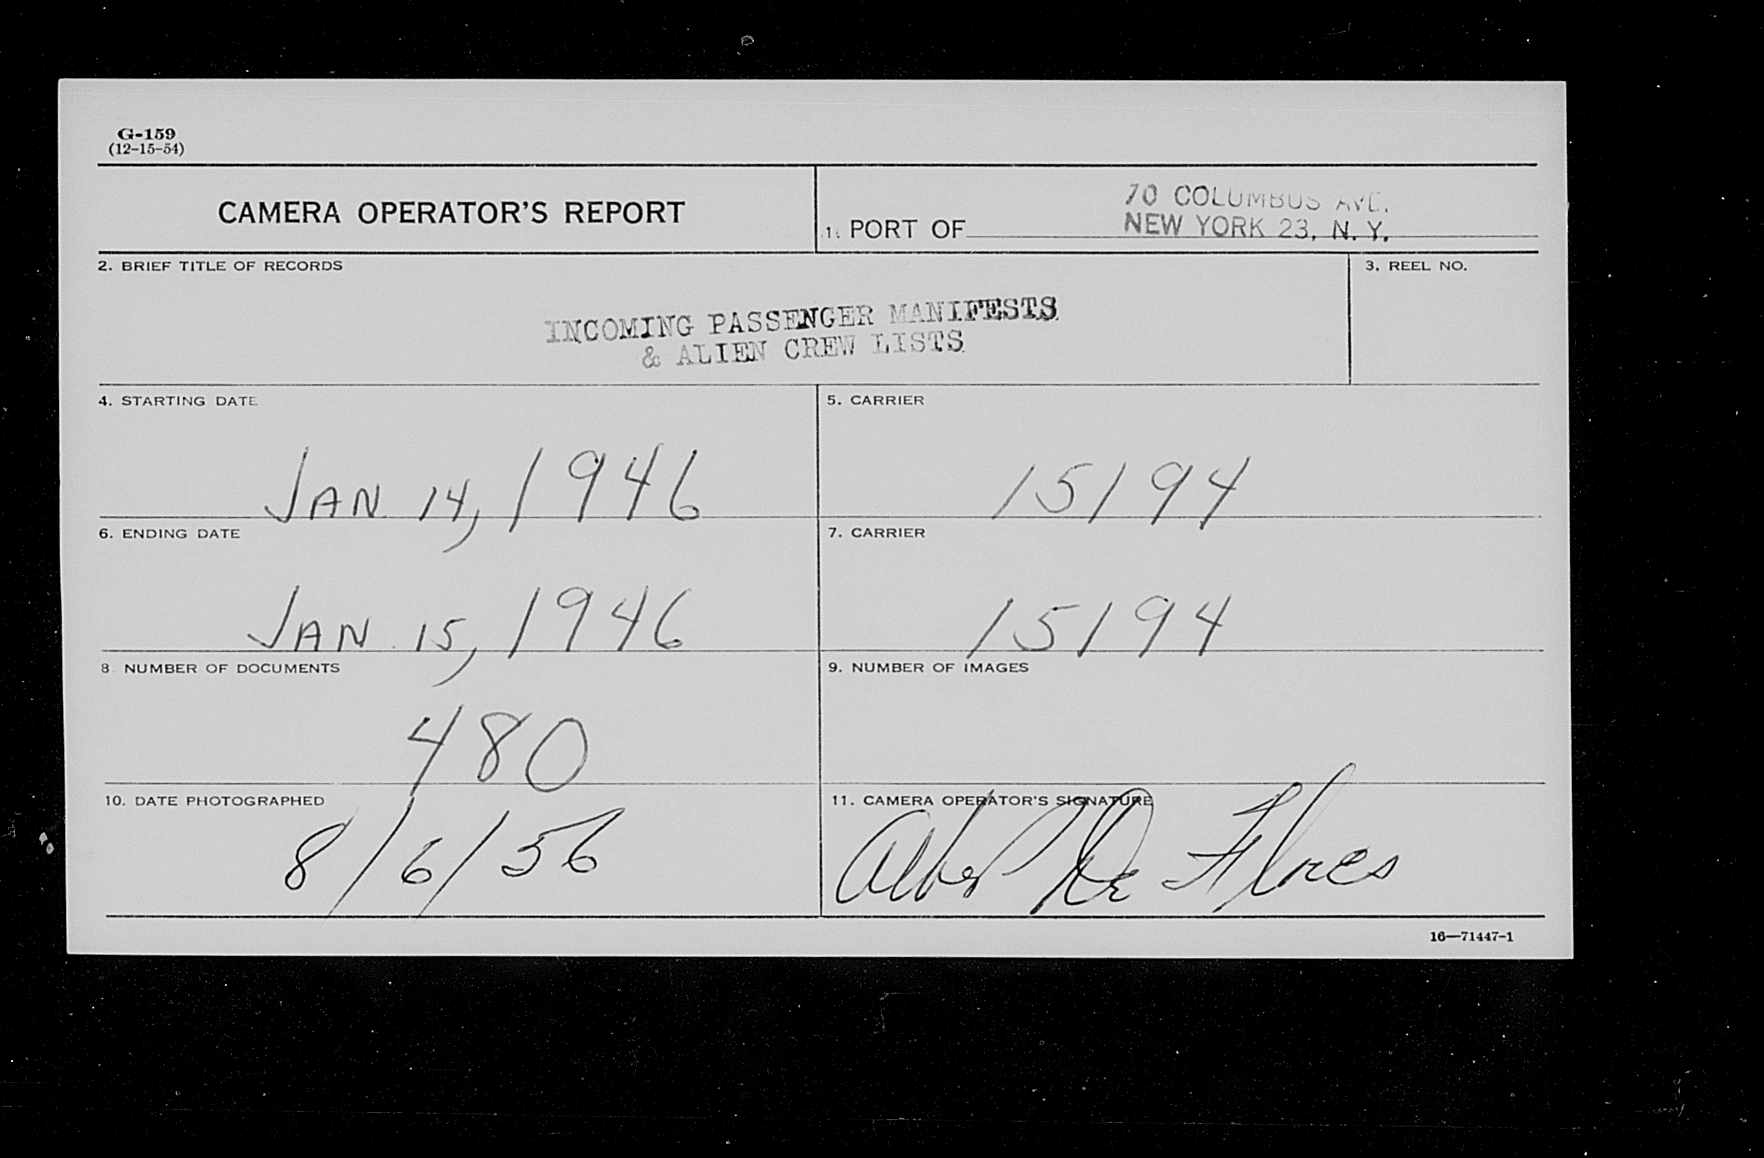 G-159
(12-15-54)
CAMERA OPERATOR'S REPORT
70 COLUMBUS AVE.
1. PORT OF NEW YORK 23, N. Y.
2. BRIEF TITLE OF RECORDS
3. REEL NO.
INCOMING PASSENGER MANIFESTS
& ALIEN CREW LISTS
4. STARTING DATE
5. CARRIER
JAN 14, 1946
15194
6. ENDING DATE
7. CARRIER
JAN 15, 1946
15194
8 NUMBER OF DOCUMENTS
9. NUMBER OF IMAGES
480
10. DATE PHOTOGRAPHED
11. CAMERA OPERATOR'S SIGNATURE
8/6/56
Albert De Flores
16—71447-1